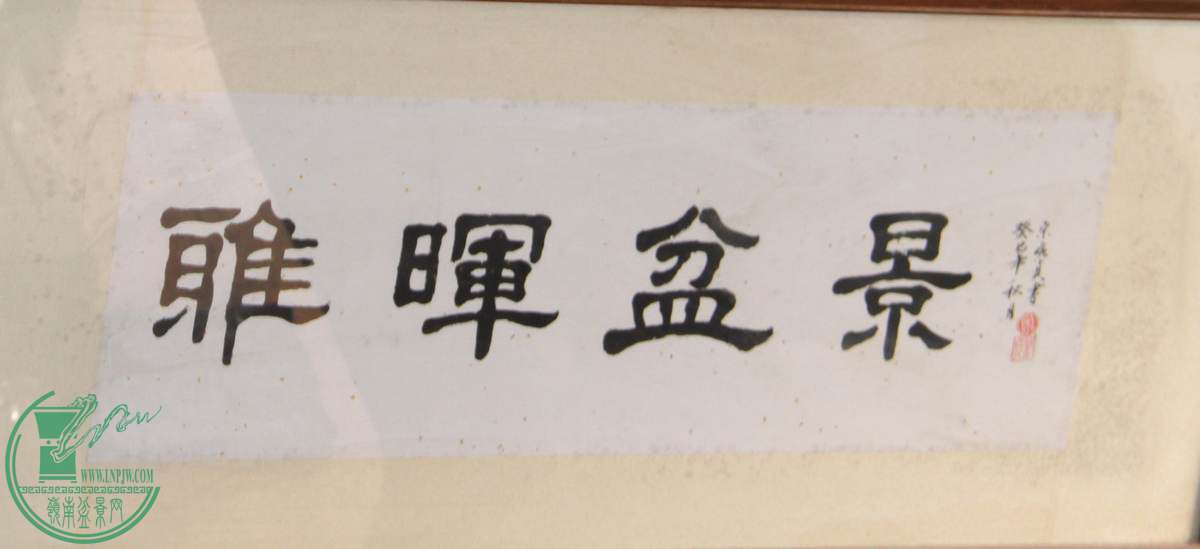 雅暉盆景
癸巳年秋月
WWW.LNPJW.COM
嶺南盆景网